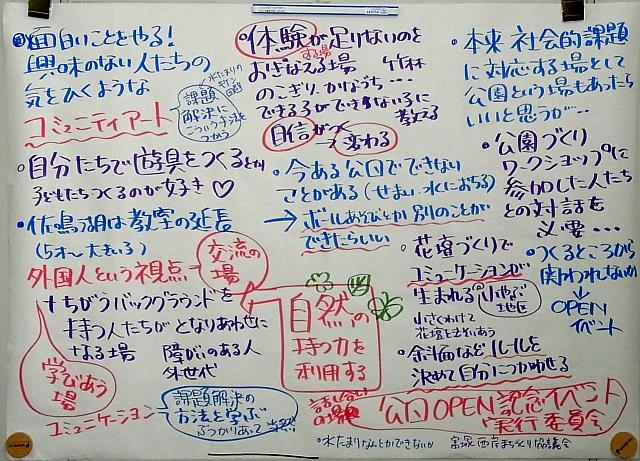 面白いことをやる!
興味のない人たちの
気をひくような
コミュニティアート
課題
解決に
こういう方法
つかう
・自分たちで遊具をつくるとか
子どもたちつくるのが好き♡
・佐鳴湖は教室の延長
外国人という視点
交流の
場
ちがうバックグラウンドを
持つ人たちがとなりあわせに
なる場
障がいのある人
外世代
学びあう
場
コミュニケーション
課題解決の
方法を学ぶ
ぶつかりあって当然
・体験が足りないのを
する場
おぎなえる場 竹林
のこぎり、かなづち…
できる子ができない子に
教える
自信がつく
→変わる
・今ある公園でできない
ことがある(せまい、水におちる)
→ボールあそびとか別のことが
できたらいい
自然の
持つ力を
利用する
・本来 社会的課題
に対応する場として
公園という場もあったら
いいと思うが…
・公園づくり
ワークショップに
参加した人たち
との対話を
必要…
・花壇づくりで
コミュニケーションが
生まれる
小さくわけて
・斜面などルールを
決めて自分につかわせる
・つくるところから
関われないか
↓
OPEN
イベント
話し合い
の場
公園OPEN記念イベント
実行委員会
・水たまりなんとかできないか
西岸まちづくり協議会